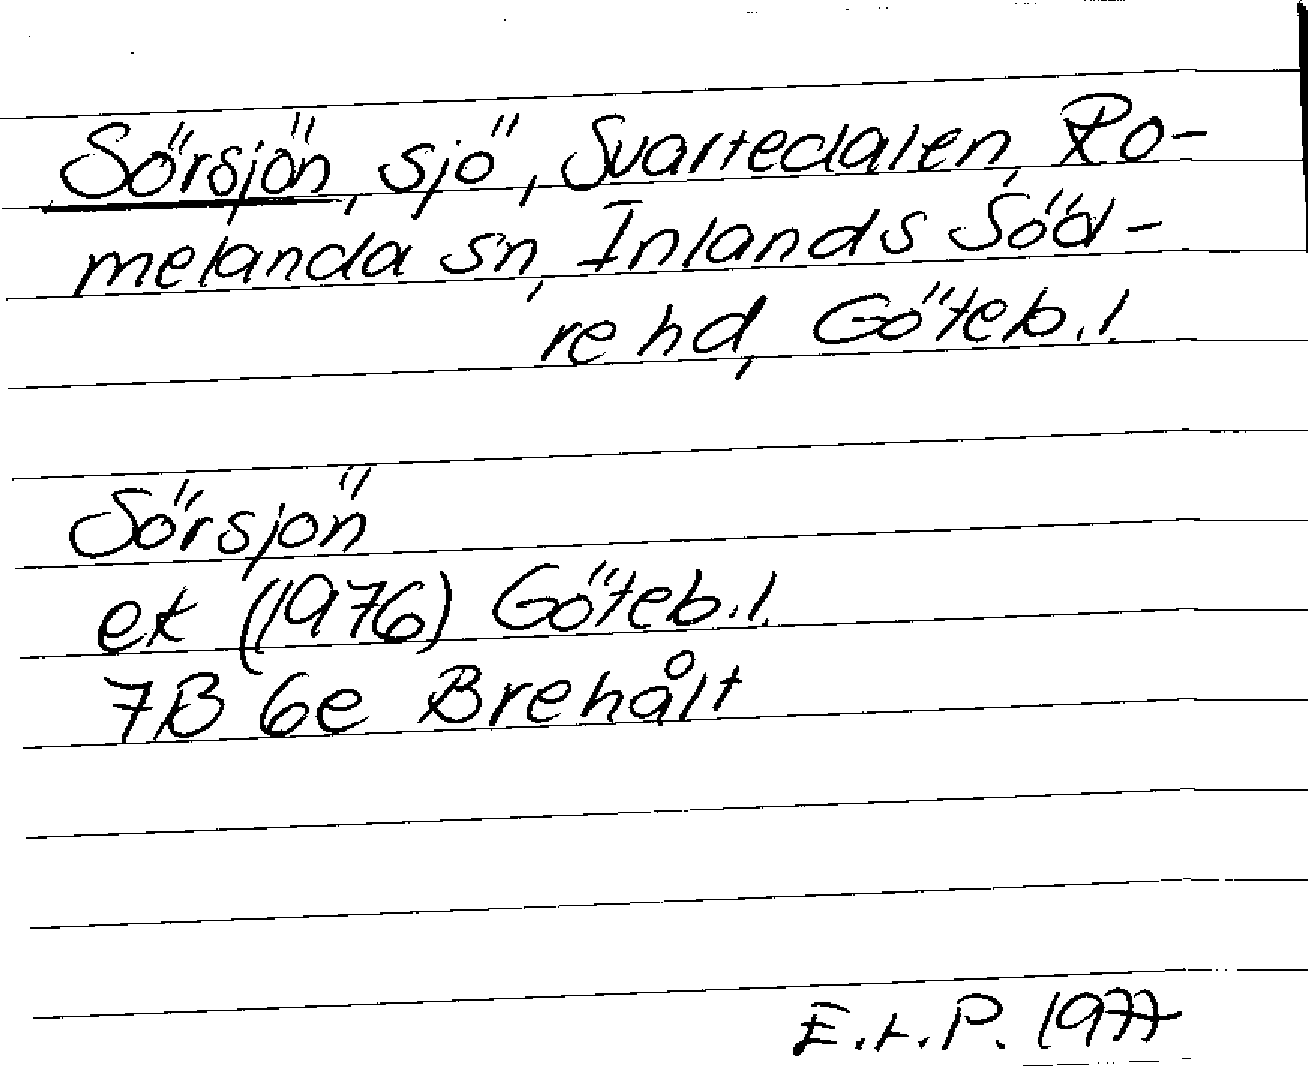 Sörsjön, sjö, Svartedalen, Ro-
melanda sn, Inlands Söd-
re hd, Göteb.l.
Sörsjön
ek (1976) Göteb.l.
7B 6e Brehålt
E.t.P. 1977